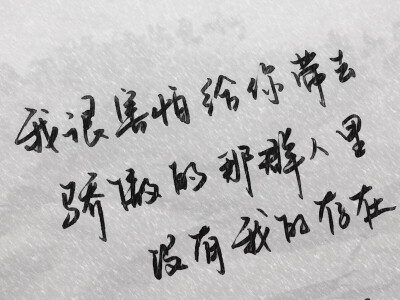 我很害怕给你带去
骄傲的那群人里
没有我的存在